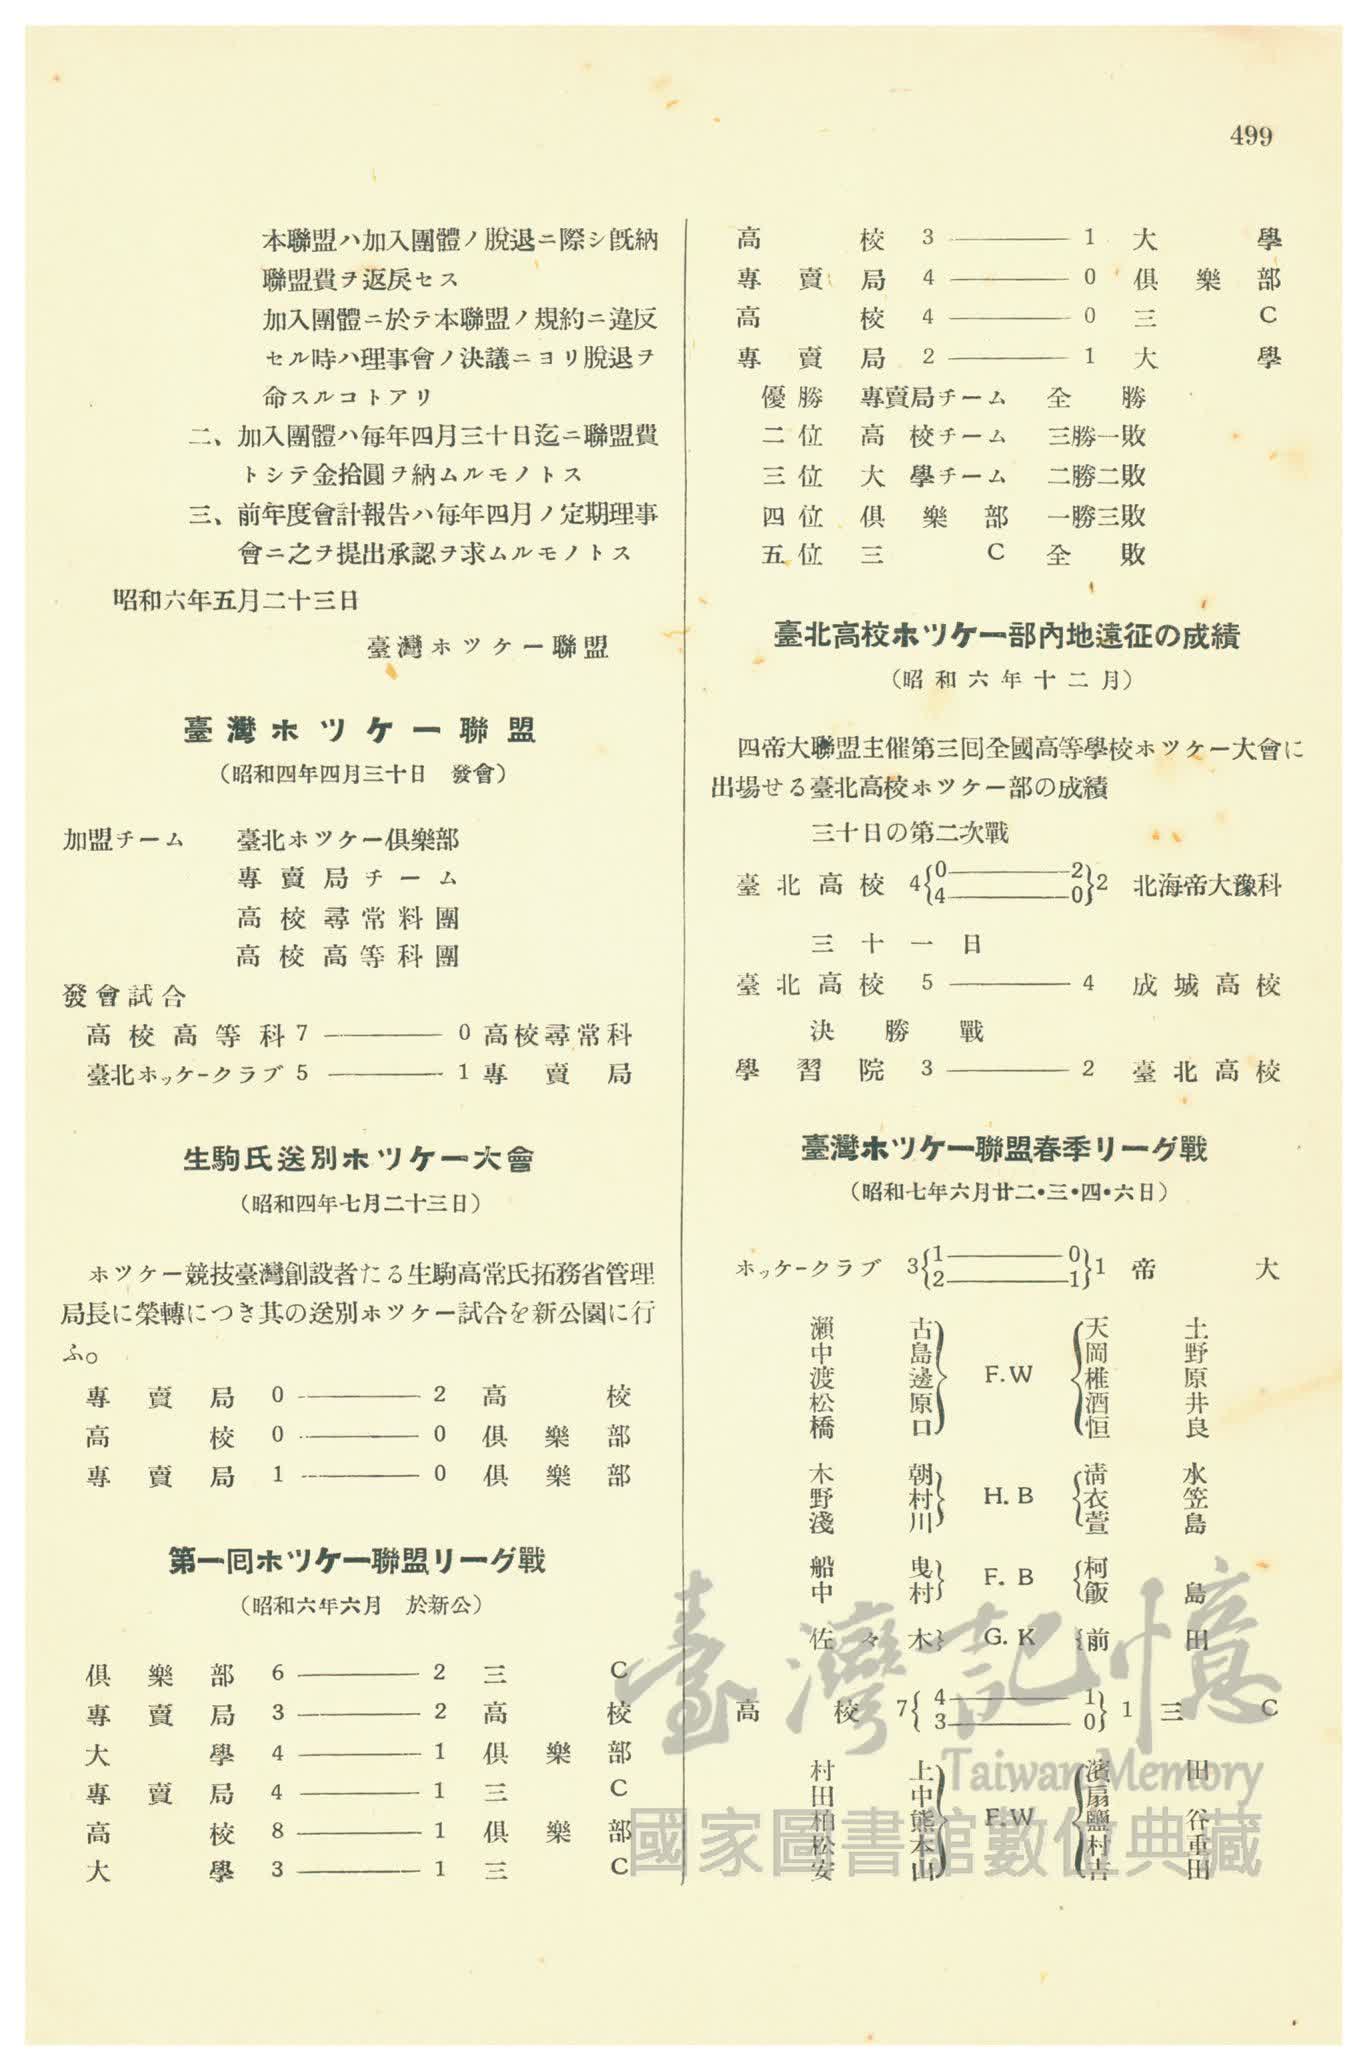 499
本聯盟ハ加入團體ノ脫退ニ際シ旣納
聯盟費ヲ返戾セス
加入團體ニ於テ本聯盟ノ規約ニ違反
セル時ハ理事會ノ決議ニヨリ脫退ヲ
命スルコトアリ
二、加入團體ハ每年四月三十日迄ニ聯盟費
トシテ金拾圓ヲ納ムルモノトス
三、前年度會計報告ハ每年四月ノ定期理事
會ニ之ヲ提出承認ヲ求ムルモノトス
昭和六年五月二十三日
臺灣ホツケー聯盟
臺灣ホツケー聯盟
(昭和四年四月三十日 發會)
加盟チーム 臺北ホツケー俱樂部
專賣局チーム
高校尋常料團
高校高等科團
發會試合
高校高等科 7 ——— 0 高校尋常科
臺北ホッケークラブ 5 ——— 1 專賣局
生駒氏送別ホツケー大會
(昭和四年七月二十三日)
ホツケー競技臺灣創設者たる生駒高常氏拓務省管理
局長に榮轉につき其の送別ホツケー試合を新公園に行
ふ。
專賣局 0 ——— 2 高校
高校 0 ——— 0 俱樂部
專賣局 1 ——— 0 俱樂部
第一囘ホツケー聯盟リーグ戰
(昭和六年六月 於新公)
俱樂部 6 ——— 2 三C
專賣局 3 ——— 2 高校
大學 4 ——— 1 俱樂部
專賣局 4 ——— 1 三C
高校 8 ——— 1 俱樂部
大學 3 ——— 1 三C
高校 3 ——— 1 大學
專賣局 4 ——— 0 俱樂部
高校 4 ——— 0 三C
專賣局 2 ——— 1 大學
優勝 專賣局チーム 全勝
二位 高校チーム 三勝一敗
三位 大學チーム 二勝二敗
四位 俱樂部 一勝三敗
五位 三C 全敗
臺北高校ホツケー部內地遠征の成績
(昭和六年十二月)
四帝大聯盟主催第三囘全國高等學校ホツケー大會に
出場せる臺北高校ホツケー部の成績
三十日の第二次戰
臺北高校 4 {0 ——— 2 / 4 ——— 0} 2 北海帝大豫科
三十一日
臺北高校 5 ——— 4 成城高校
決勝戰
學習院 3 ——— 2 臺北高校
臺灣ホツケー聯盟春季リーグ戰
(昭和七年六月廿二•三•四•六日)
ホッケークラブ 3 {1 ——— 0 / 2 ——— 1} 1 帝大
瀨古 天土
中島 岡野
渡邊 F.W 椎原
松原 酒井
橋口 恒良
木朝 淸水
野村 H.B 衣笠
淺川 萱島
船曳 F.B 柯
中村 飯島
佐々木 G.K 前田
高校 7 {4 ——— 1 / 3 ——— 0} 1 三C
村上 濱田
田中 扇
柏熊 F.W 鹽谷
松本 村重
安山 吉田
臺灣記憶
Taiwan Memory
國家圖書館數位典藏